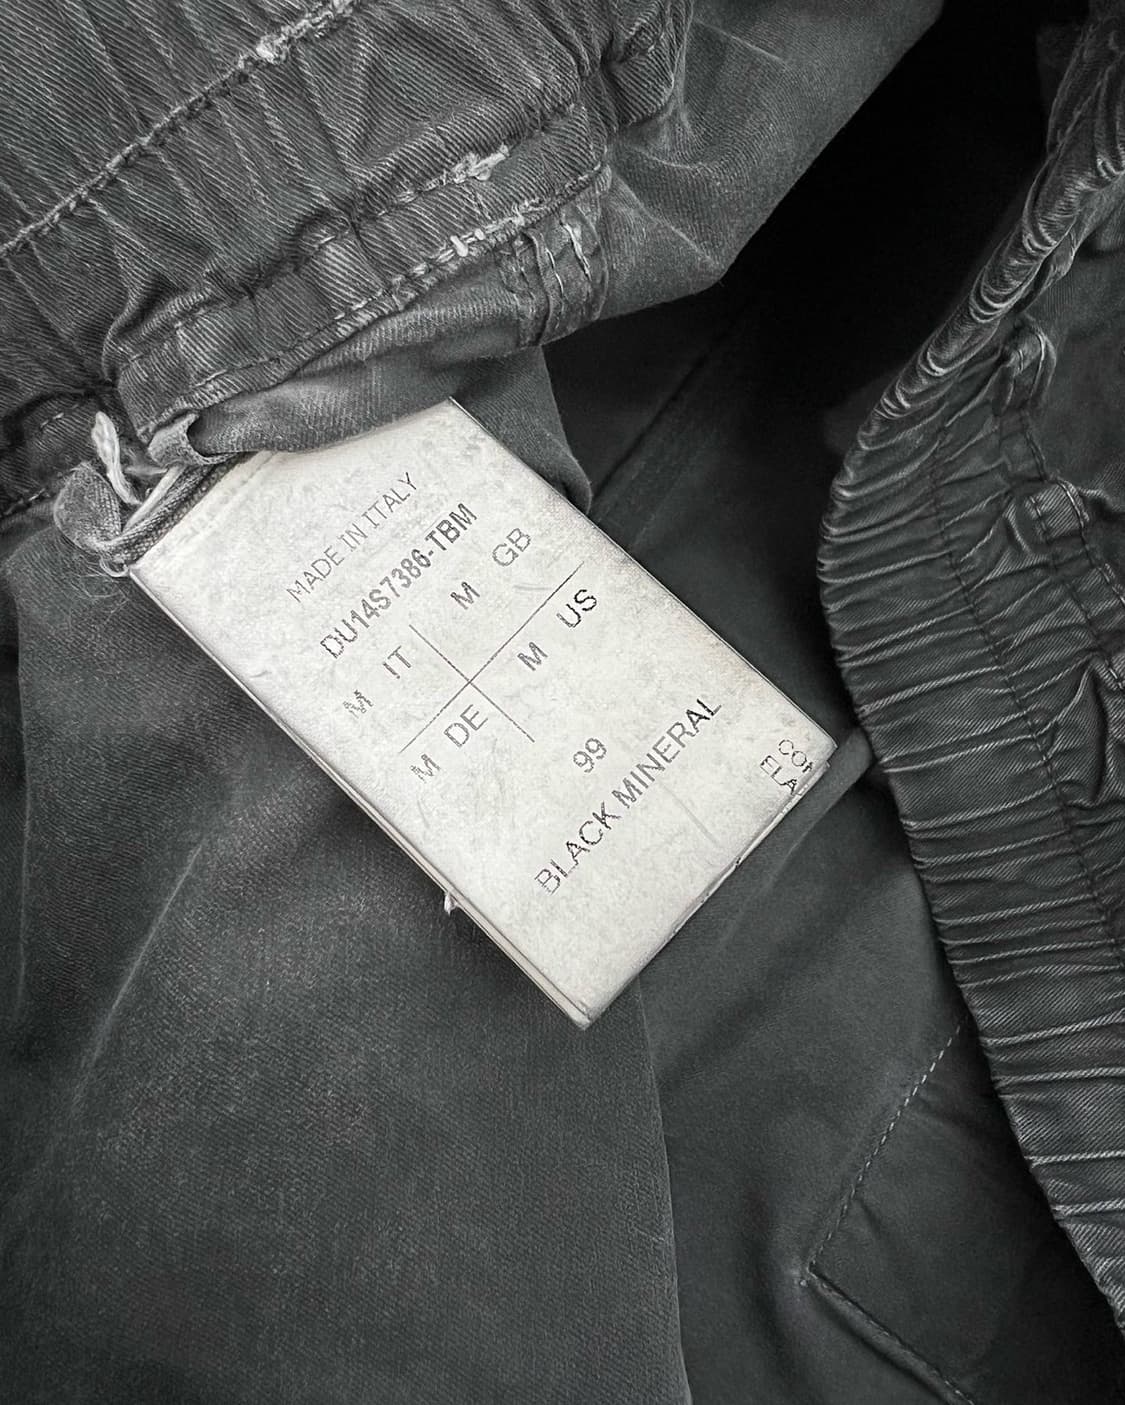 MADE IN ITALY
DU14S7386-TBM
M IT M GB
M DE M US
99
BLACK MINERAL